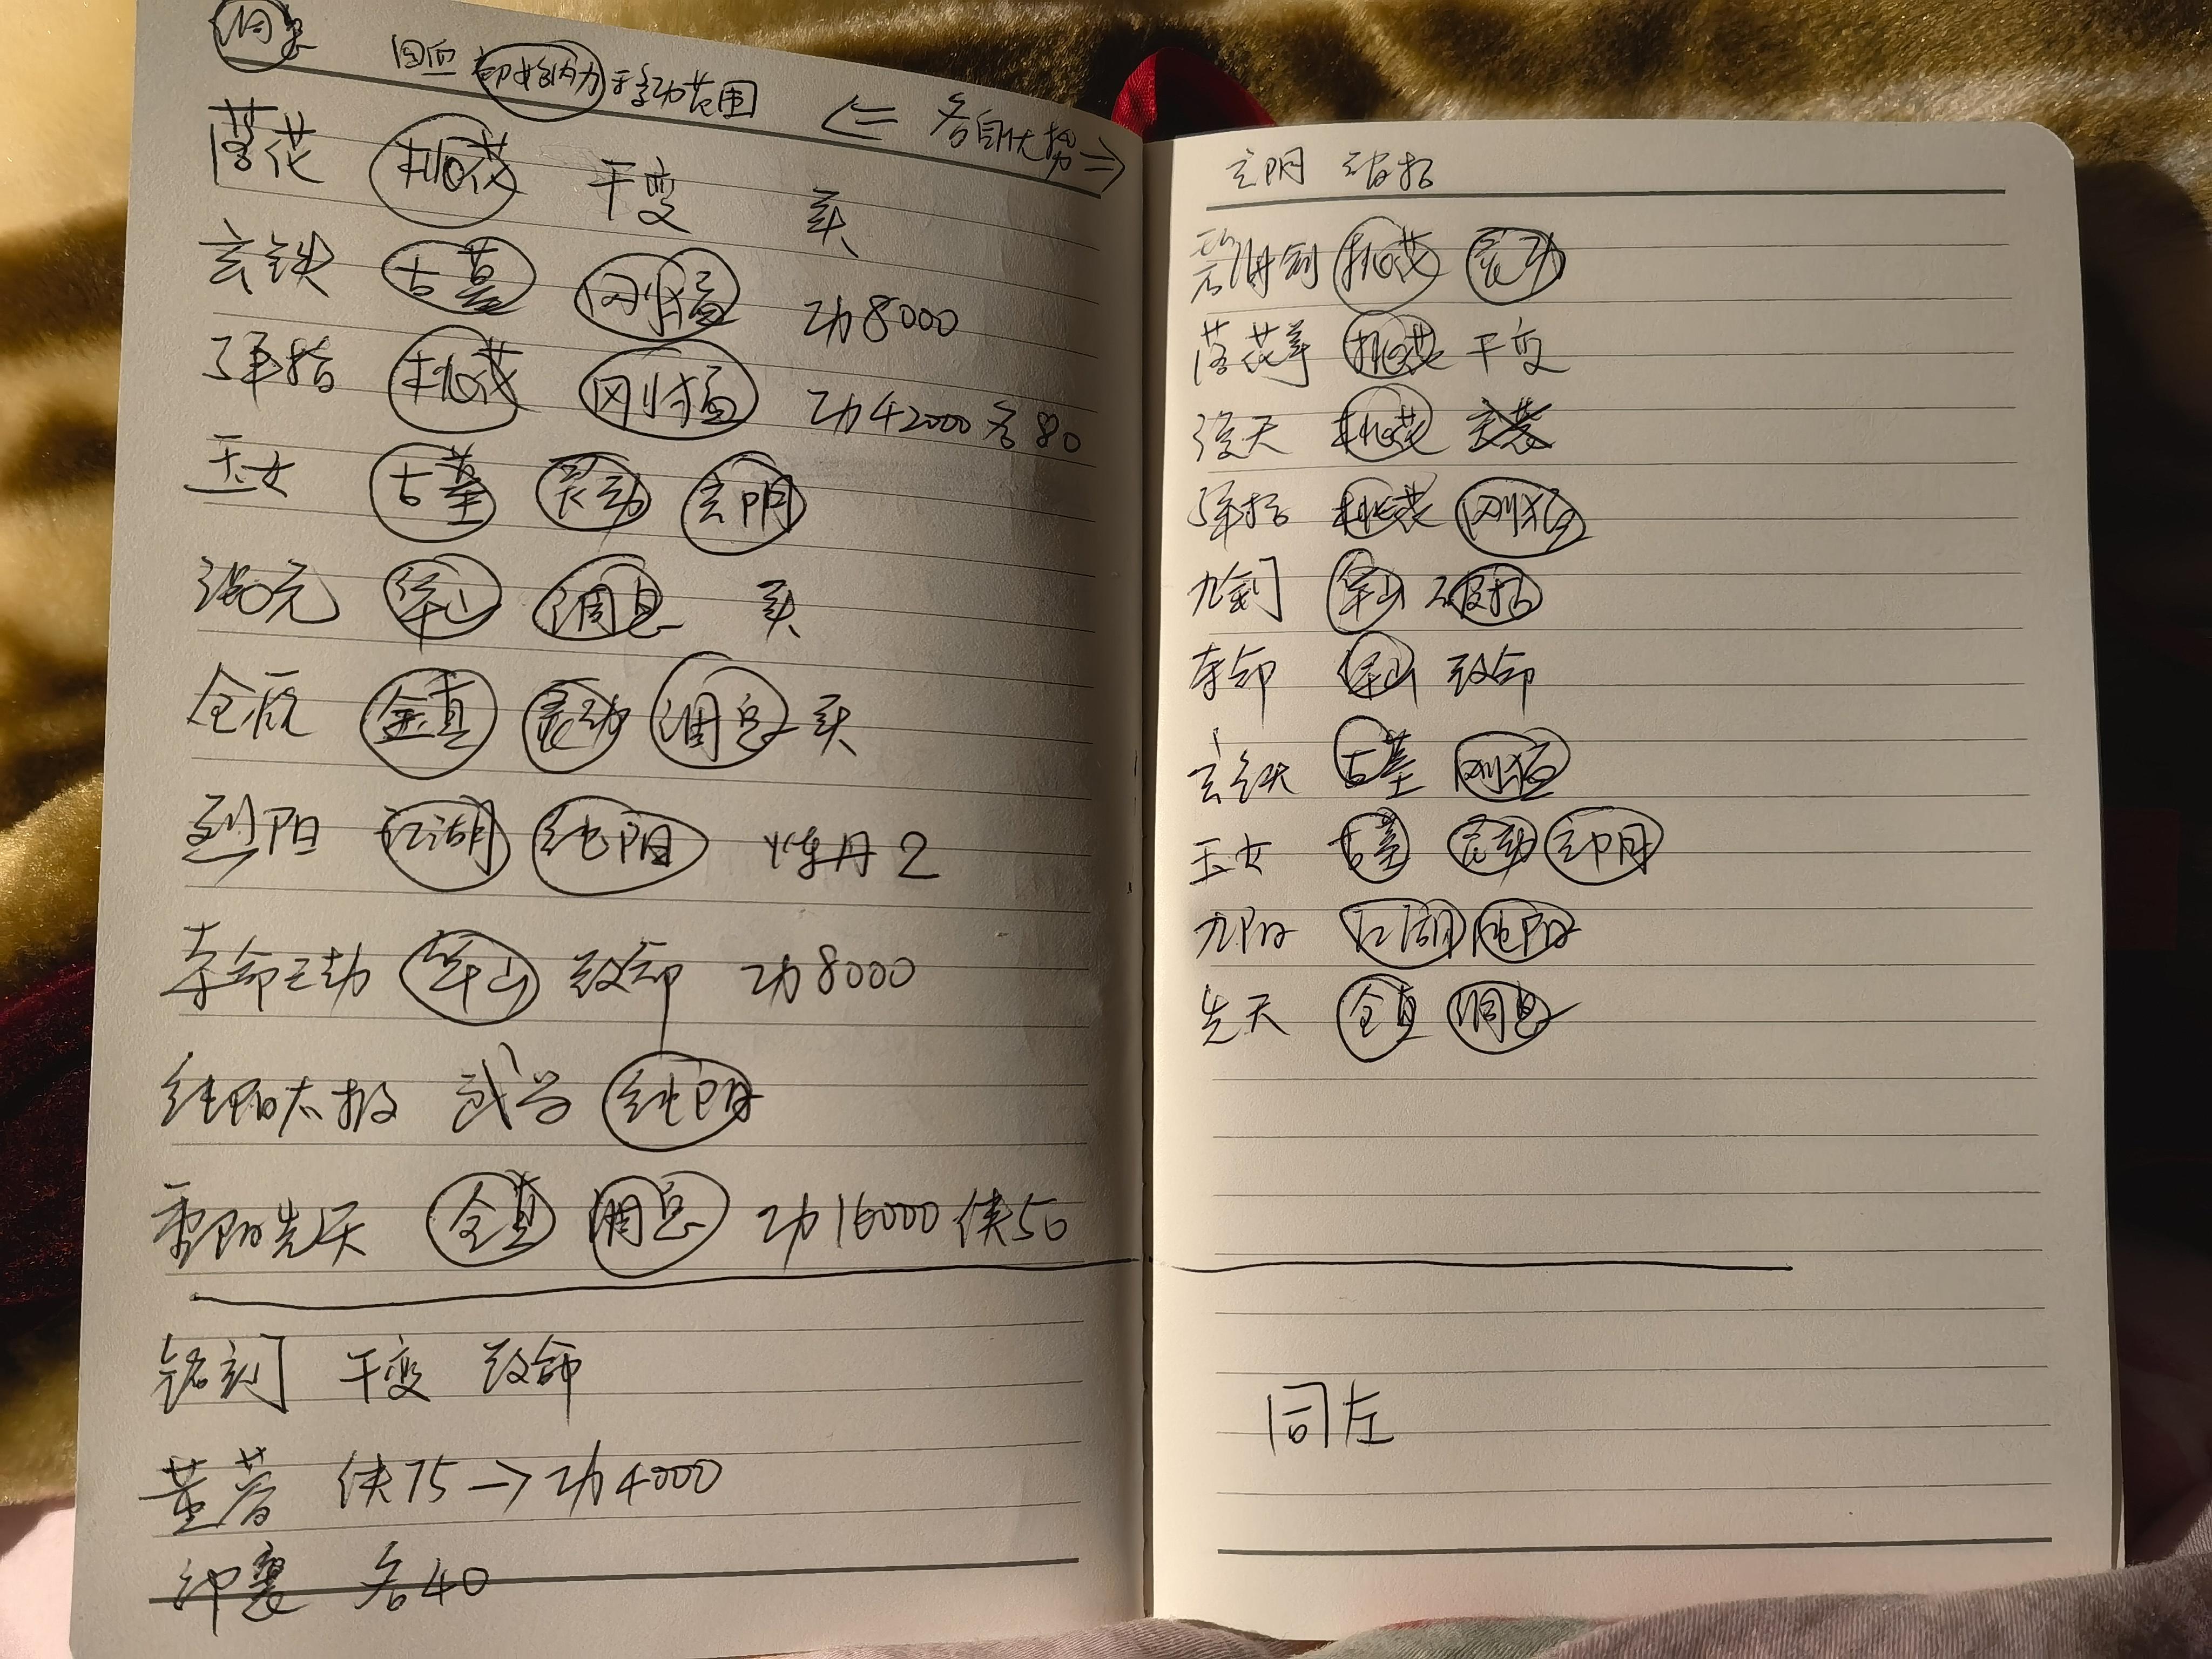 调息 回血 初始内力 移动范围 ⇐ 各自优势 ⇒
落花 桃花 千变 买
玄铁 古墓 刚猛 功8000
弹指 桃花 刚猛 功42000 名80
玉女 古墓 灵动 玄阴
混元 华山 调息 买
全真 灵动 调息 买
烈阳 江湖 纯阳 炼丹2
夺命三劫 华山 致命 功8000
纯阳太极 武当 纯阳
重阳先天 全真 调息 功16000 侠50
铭刻 千变 致命
董蓉 侠75→功4000
名40
玄阴
剑 桃花 灵动
落花掌 桃花 千变
漫天 桃花
弹指 桃花 刚猛
九剑 华山 破招
夺命 华山 致命
玄铁 古墓 刚猛
玉女 古墓 灵动 玄阴
九阳 江湖 纯阳
先天 全真 调息
同左